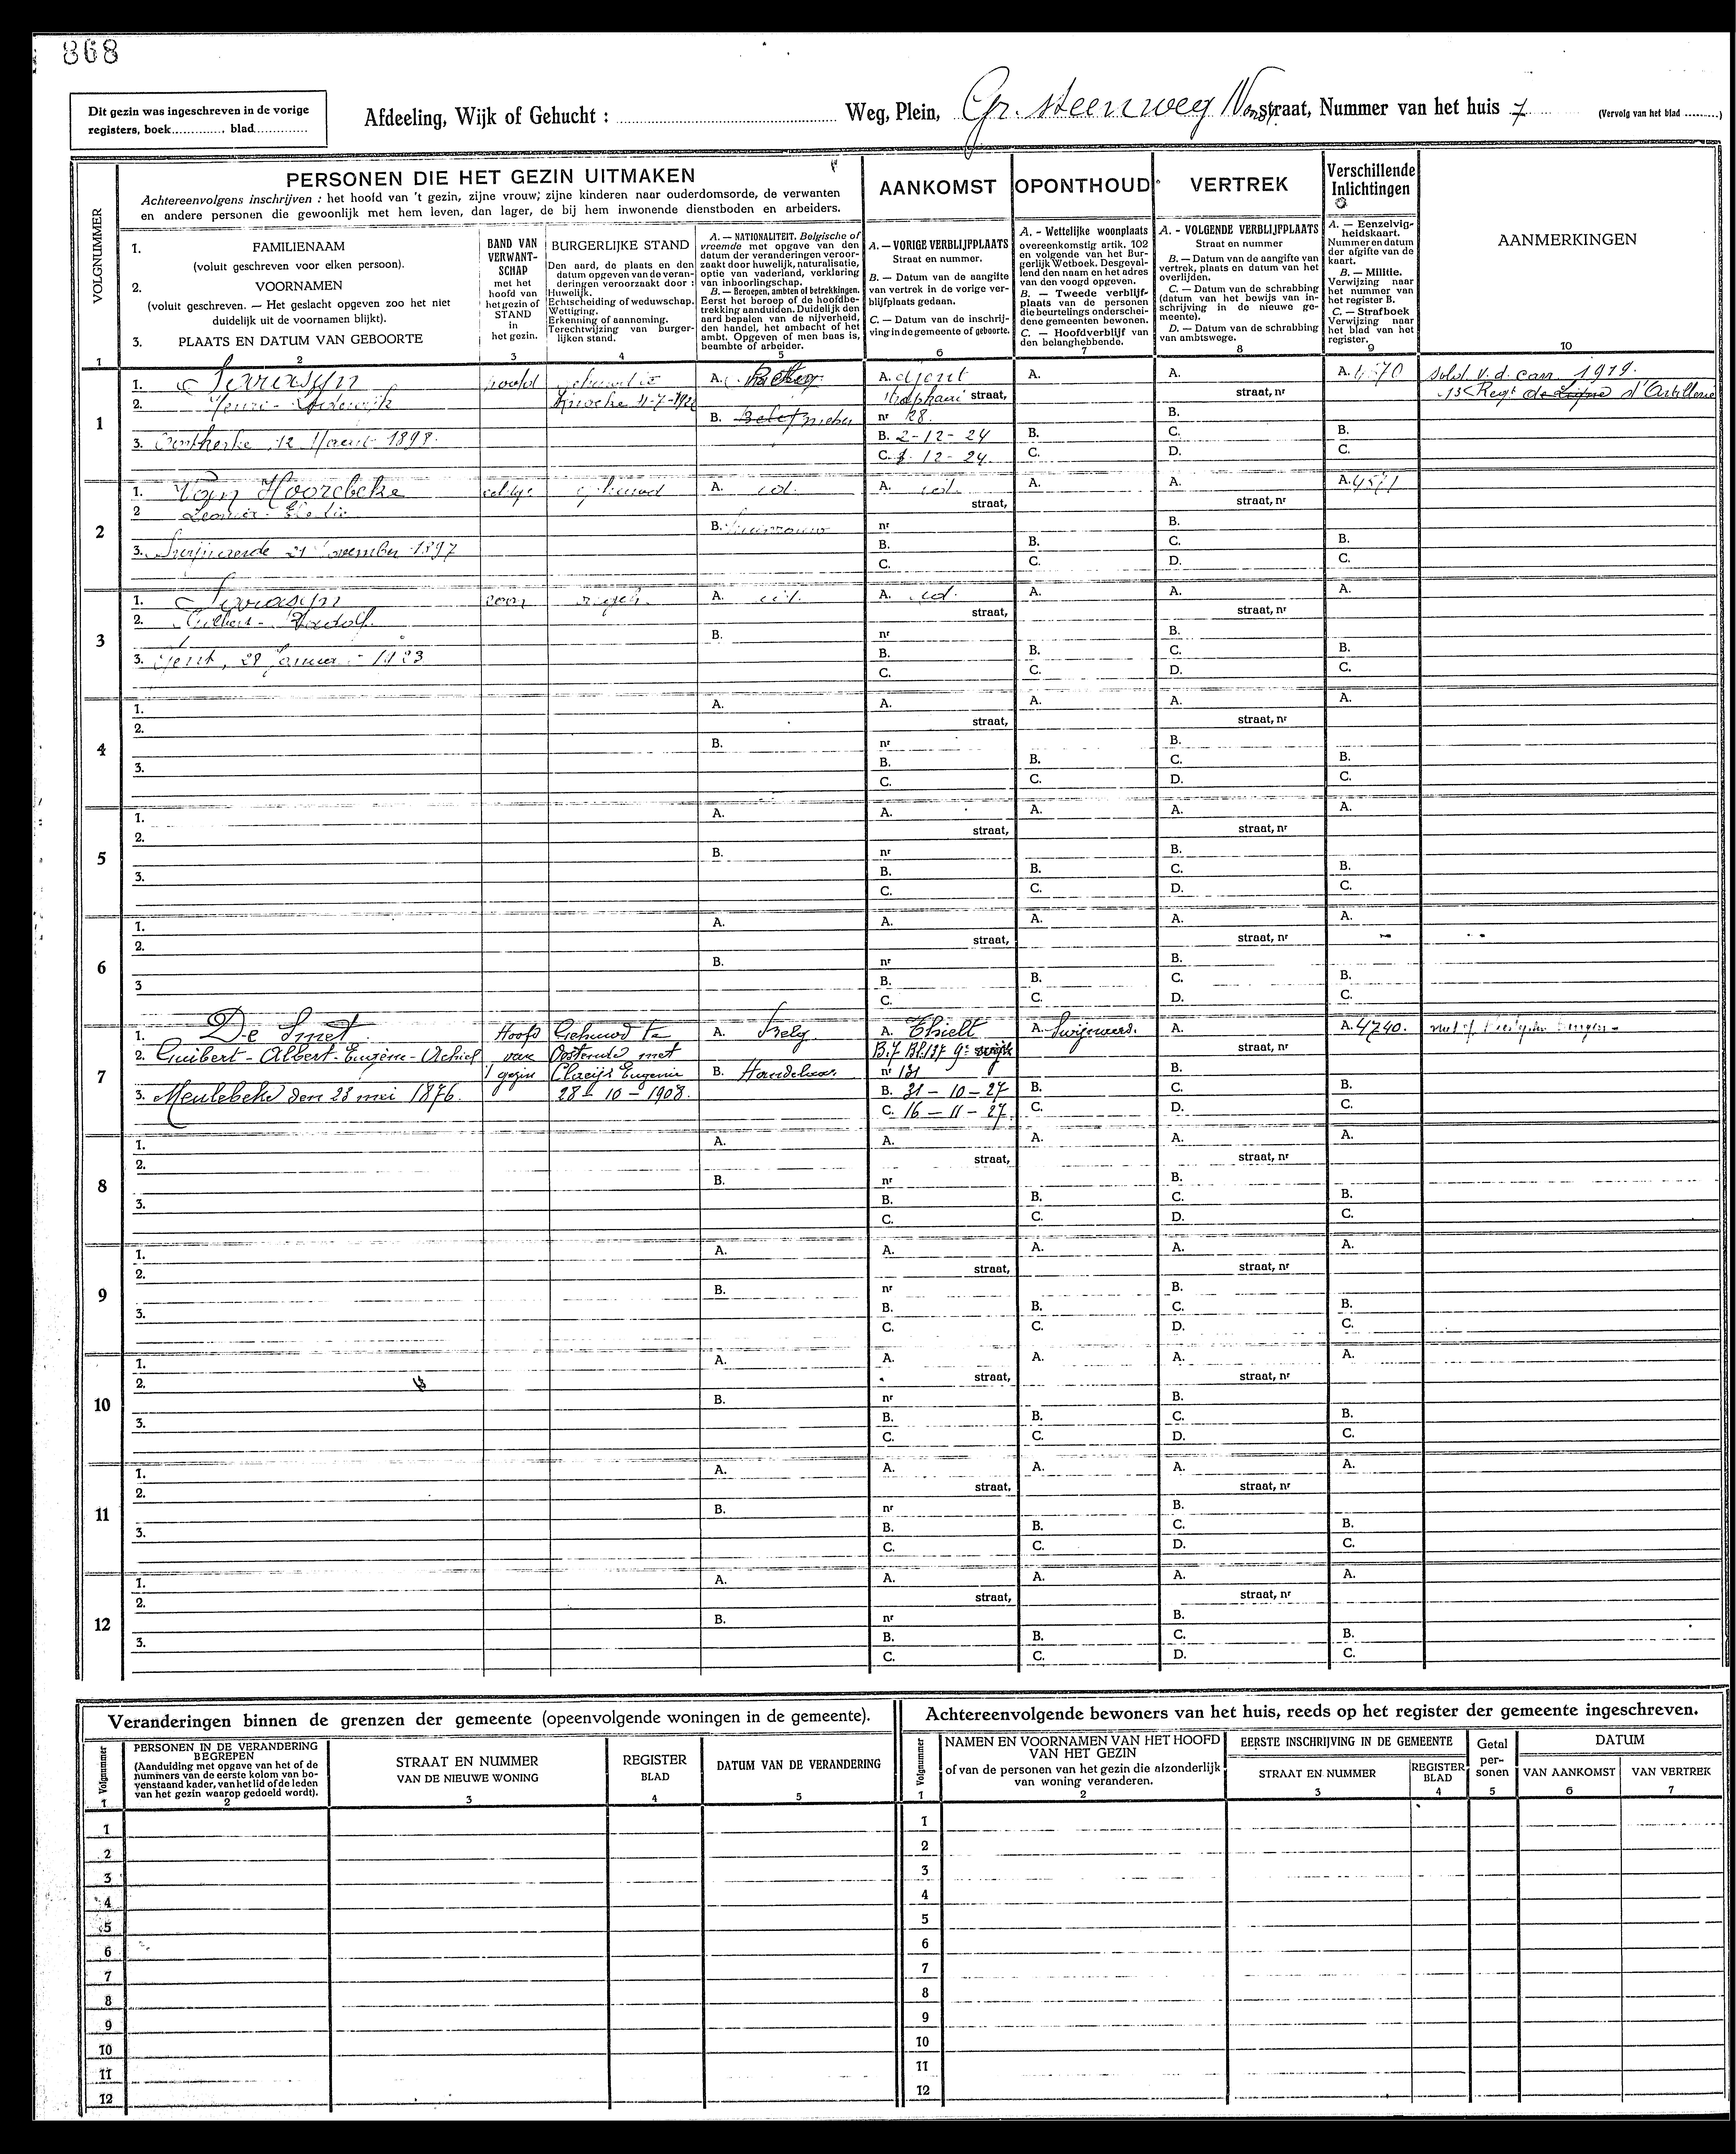 868
Dit gezin was ingeschreven in de vorige
registers, boek............., blad..............
Afdeeling, Wijk of Gehucht :
Weg, Plein, Gr. steenweg Noord straat, Nummer van het huis 7
(Vervolg van het blad .........)
PERSONEN DIE HET GEZIN UITMAKEN
Achtereenvolgens inschrijven : het hoofd van 't gezin, zijne vrouw; zijne kinderen naar ouderdomsorde, de verwanten
en andere personen die gewoonlijk met hem leven, dan lager, de bij hem inwonende dienstboden en arbeiders.
AANKOMST
OPONTHOUD
VERTREK
Verschillende
Inlichtingen
VOLGNUMMER
1.
FAMILIENAAM
(voluit geschreven voor elken persoon).
2.
VOORNAMEN
(voluit geschreven. — Het geslacht opgeven zoo het niet
duidelijk uit de voornamen blijkt).
3. PLAATS EN DATUM VAN GEBOORTE
BAND VAN
VERWANT-
SCHAP
met het
hoofd van
het gezin of
STAND
in
het gezin.
BURGERLIJKE STAND
Den aard, de plaats en den
datum opgeven van de veran-
deringen veroorzaakt door :
Huwelijk.
Echtscheiding of weduwschap.
Wettiging.
Erkenning of aanneming.
Terechtwijzing van burger-
lijken stand.
A. — NATIONALITEIT. Belgische of
vreemde met opgave van den
datum der veranderingen veroor-
zaakt door huwelijk, naturalisatie,
optie van vaderland, verklaring
van inboorlingschap.
B. — Beroepen, ambten of betrekkingen.
Eerst het beroep of de hoofdbe-
trekking aanduiden. Duidelijk den
aard bepalen van de nijverheid,
den handel, het ambacht of het
ambt. Opgeven of men baas is,
beambte of arbeider.
A. — VORIGE VERBLIJFPLAATS
Straat en nummer.
B. — Datum van de aangifte
van vertrek in de vorige ver-
blijfplaats gedaan.
C. — Datum van de inschrij-
ving in de gemeente of geboorte.
A. - Wettelijke woonplaats
overeenkomstig artik. 102
en volgende van het Bur-
gerlijk Wetboek. Desgeval-
lend den naam en het adres
van den voogd opgeven.
B. — Tweede verblijf-
plaats van de personen
die beurtelings onderschei-
dene gemeenten bewonen.
C. — Hoofdverblijf van
den belanghebbende.
A. - VOLGENDE VERBLIJFPLAATS
Straat en nummer
B. — Datum van de aangifte van
vertrek, plaats en datum van het
overlijden.
C. — Datum van de schrabbing
(datum van het bewijs van in-
schrijving in de nieuwe ge-
meente).
D. — Datum van de schrabbing
van ambtswege.
A. — Eenzelvig-
heidskaart.
Nummer en datum
der afgifte van de
kaart.
B. — Militie.
Verwijzing naar
het nummer van
het register B.
C. — Strafboek
Verwijzing naar
het blad van het
register.
AANMERKINGEN
1 2 3 4 5 6 7 8 9 10
1
1. Serrasyn hoofd A. A. Gent A. A. A. 4570 sold v. d. can. 1919.
2. Henri - Lodewijk Knocke straat, straat, nr 13e Regt de Ligne d'Artillerie
B. nr 128. B.
3. 12 Maart 1898. B. 2-12-24 B. C. B.
C. 12-24 C. D. C.
2
1. Van Hoorebeke gehuwd A. id. A. id. A. A. A. 4571
2 straat, straat, nr
B. Huisvrouw nr B.
3. Swijnaerde 21 November 1897 B. B. C. B.
C. C. D. C.
3
1. Serrasyn zoon ongeh. A. id. A. id. A. A. A.
2. straat, straat, nr
B. nr B.
3. Gent, 28 Januari - 1923 B. B. C. B.
C. C. D. C.
4
1. A. A. A. A. A.
2. straat, straat, nr
B. nr B.
3. B. B. C. B.
C. C. D. C.
5
1. A. A. A. A. A.
2. straat, straat, nr
B. nr B.
3. B. B. C. B.
C. C. D. C.
6
1. A. A. A. A. A.
2. straat, straat, nr
B. nr B.
3 B. B. C. B.
C. C. D. C.
7
1. De Smet Hoofd Gehuwd te A. Belg A. Thielt A. Swijnaerd. A. A. 4740.
2. Guibert - Albert - Eugène - Achiel van Oostende met B.7 Bl.137 straat, nr
't gezin Claeijs Eugenie B. Handelaar nr 131 B.
3. Meulebeke den 23 mei 1876. 28 - 10 - 1908. B. 31 - 10 - 27 B. C. B.
C. 16 - 11 - 27. C. D. C.
8
1. A. A. A. A. A.
2. straat, straat, nr
B. nr B.
3. B. B. C. B.
C. C. D. C.
9
1. A. A. A. A. A.
2. straat, straat, nr
B. nr B.
3. B. B. C. B.
C. C. D. C.
10
1. A. A. A. A. A.
2. straat, straat, nr
B. nr B.
3. B. B. C. B.
C. C. D. C.
11
1. A. A. A. A. A.
2. straat, straat, nr
B. nr B.
3. B. B. C. B.
C. C. D. C.
12
1. A. A. A. A. A.
2. straat, straat, nr
B. nr B.
3. B. B. C. B.
C. C. D. C.
Veranderingen binnen de grenzen der gemeente (opeenvolgende woningen in de gemeente).
Volgnummer
PERSONEN IN DE VERANDERING
BEGREPEN
(Aanduiding met opgave van het of de
nummers van de eerste kolom van bo-
venstaand kader, van het lid of de leden
van het gezin waarop gedoeld wordt).
STRAAT EN NUMMER
VAN DE NIEUWE WONING
REGISTER
BLAD
DATUM VAN DE VERANDERING
1 2 3 4 5
1
2
3
4
5
6
7
8
9
10
11
12
Achtereenvolgende bewoners van het huis, reeds op het register der gemeente ingeschreven.
Volgnummer
NAMEN EN VOORNAMEN VAN HET HOOFD
VAN HET GEZIN
of van de personen van het gezin die afzonderlijk
van woning veranderen.
EERSTE INSCHRIJVING IN DE GEMEENTE
STRAAT EN NUMMER
REGISTER
BLAD
Getal
per-
sonen
DATUM
VAN AANKOMST
VAN VERTREK
1 2 3 4 5 6 7
1
2
3
4
5
6
7
8
9
10
11
12